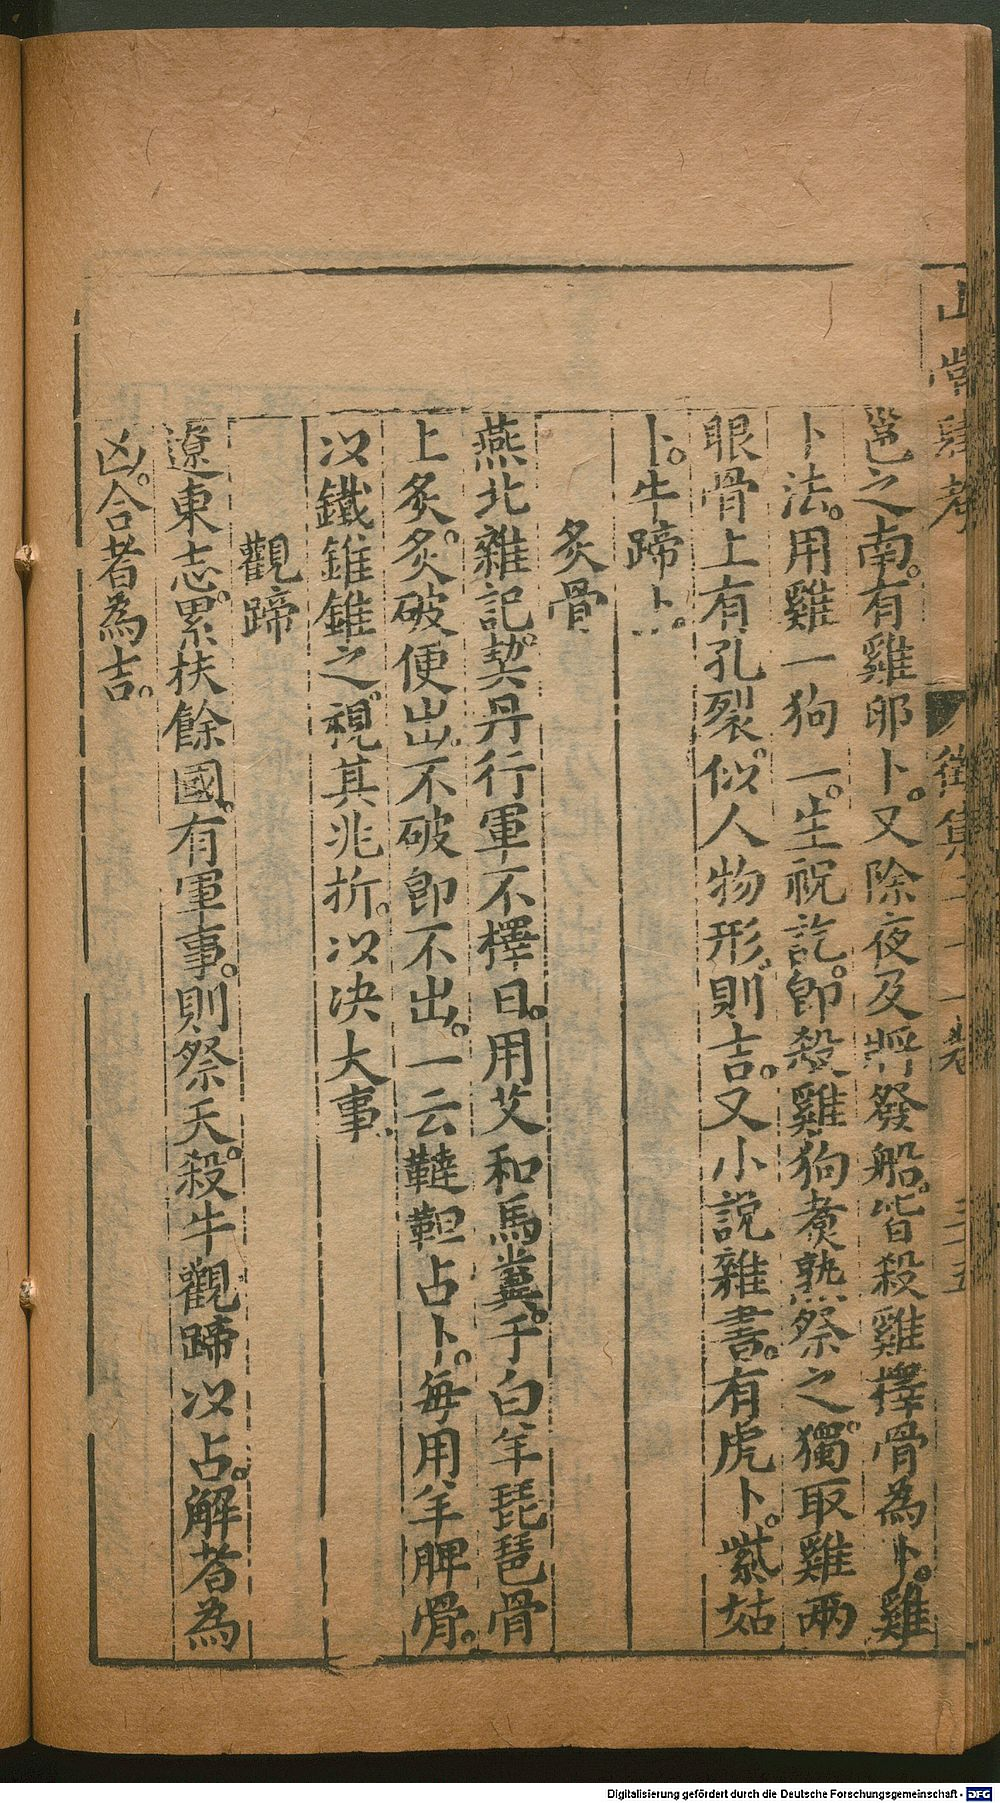 山堂肆考
徵集
邕之南。有雞卵卜。又除夜及將發船。皆殺雞擇骨為卜。雞
卜法。用雞一狗一。生祝訖。即殺雞狗煮熟祭之。獨取雞兩
眼骨上有孔裂。似人物形。則吉。又小說雜書。有虎卜。紫姑
卜。牛蹄卜。
炙骨
燕北雜記。契丹行軍不擇日。用艾和馬糞。于白羊琵琶骨
上炙。炙破便出。不破即不出。一云韃靼占卜。每用羊脾骨。
以鐵錐錐之。視其兆折。以决大事
觀蹄
遼東志。累扶餘國。有軍事。則祭天。殺牛觀蹄以占。解者為
凶。合者為吉。
Digitalisierung gefördert durch die Deutsche Forschungsgemeinschaft - DFG